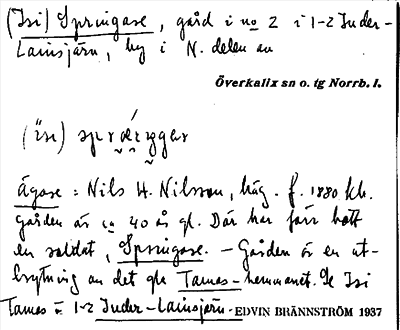 (Isi) Springare, gård i no 2 i 1-2 Inder-
Lainsjärv, by i N. delen av
Överkalix sn o. tg Norrb. l.
(isi)
Ägare: Nils H. Nilsson, häg. f. 1880 hb.
gården är ca 40 år gl. Där har förr bott
en soldat, Springare. – Gården är en ut-
brytning av det gla Tames-hemmanet. Se Isi
Tames i 1-2 Inder-Lainsjärv. EDVIN BRÄNNSTRÖM 1937